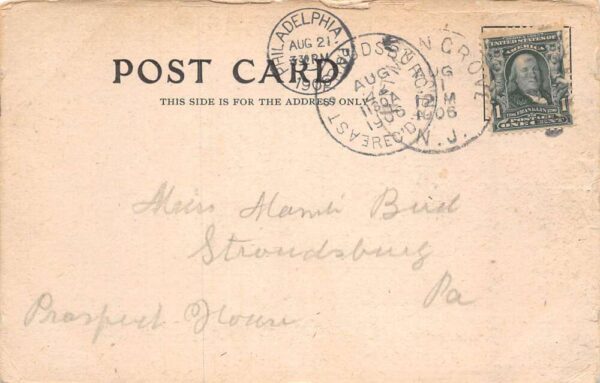 POST CARD
THIS SIDE IS FOR THE ADDRESS ONLY
PHILADELPHIA, PA.
AUG 21
330PM
1906
EAST STROUDSBURG
AUG
REC'D.
GROVE
AUG
12 M
1906
N.J.
UNITED STATES OF
AMERICA
1 1
FRANKLIN
POSTAGE
ONE CENT
Miss Mami Bird
Stroudsburg
Pa
Prospect House